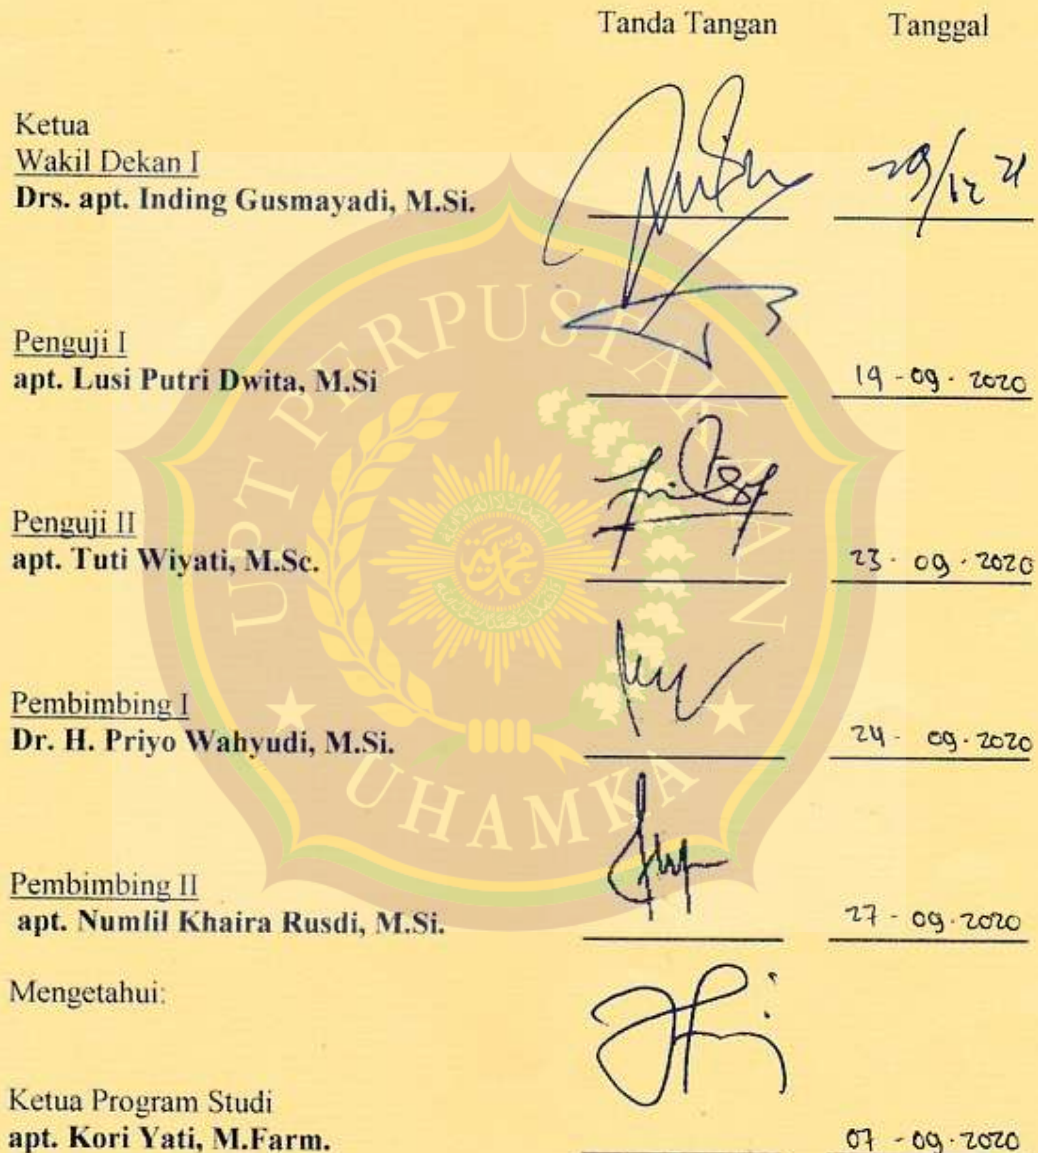 Tanda Tangan Tanggal
Ketua
Wakil Dekan I
Drs. apt. Inding Gusmayadi, M.Si.
29/12 21
Penguji I
apt. Lusi Putri Dwita, M.Si
19 - 09 - 2020
Penguji II
apt. Tuti Wiyati, M.Sc.
23 - 09 - 2020
Pembimbing I
Dr. H. Priyo Wahyudi, M.Si.
24 - 09 - 2020
Pembimbing II
apt. Numlil Khaira Rusdi, M.Si.
27 - 09 - 2020
Mengetahui:
Ketua Program Studi
apt. Kori Yati, M.Farm.
07 - 09 - 2020
UPT PERPUSTAKAAN
UHAMKA